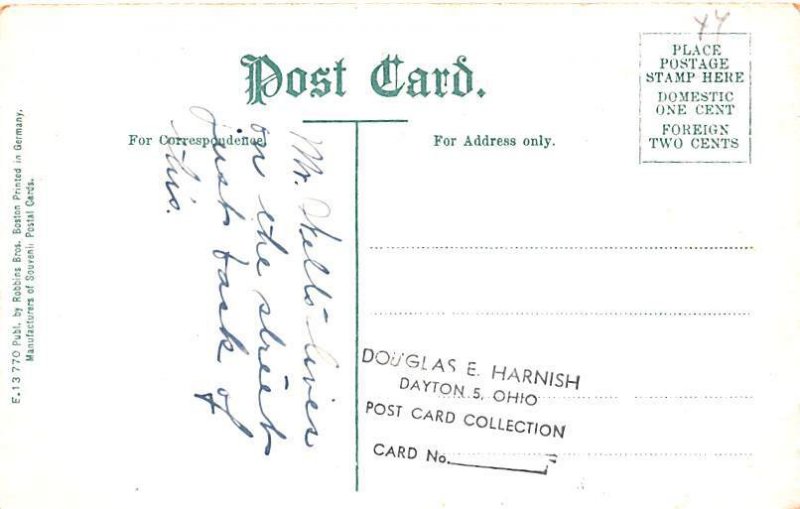 44
Post Card.
PLACE
POSTAGE
STAMP HERE
DOMESTIC
ONE CENT
FOREIGN
TWO CENTS
For Correspondence.
For Address only.
Mr. Wells lives
on the street
just back of
this.
E. 13770 Publ. by Robbins Bros. Boston Printed in Germany.
Manufacturers of Souvenir Postal Cards.
DOUGLAS E. HARNISH
DAYTON 5, OHIO
POST CARD COLLECTION
CARD No.